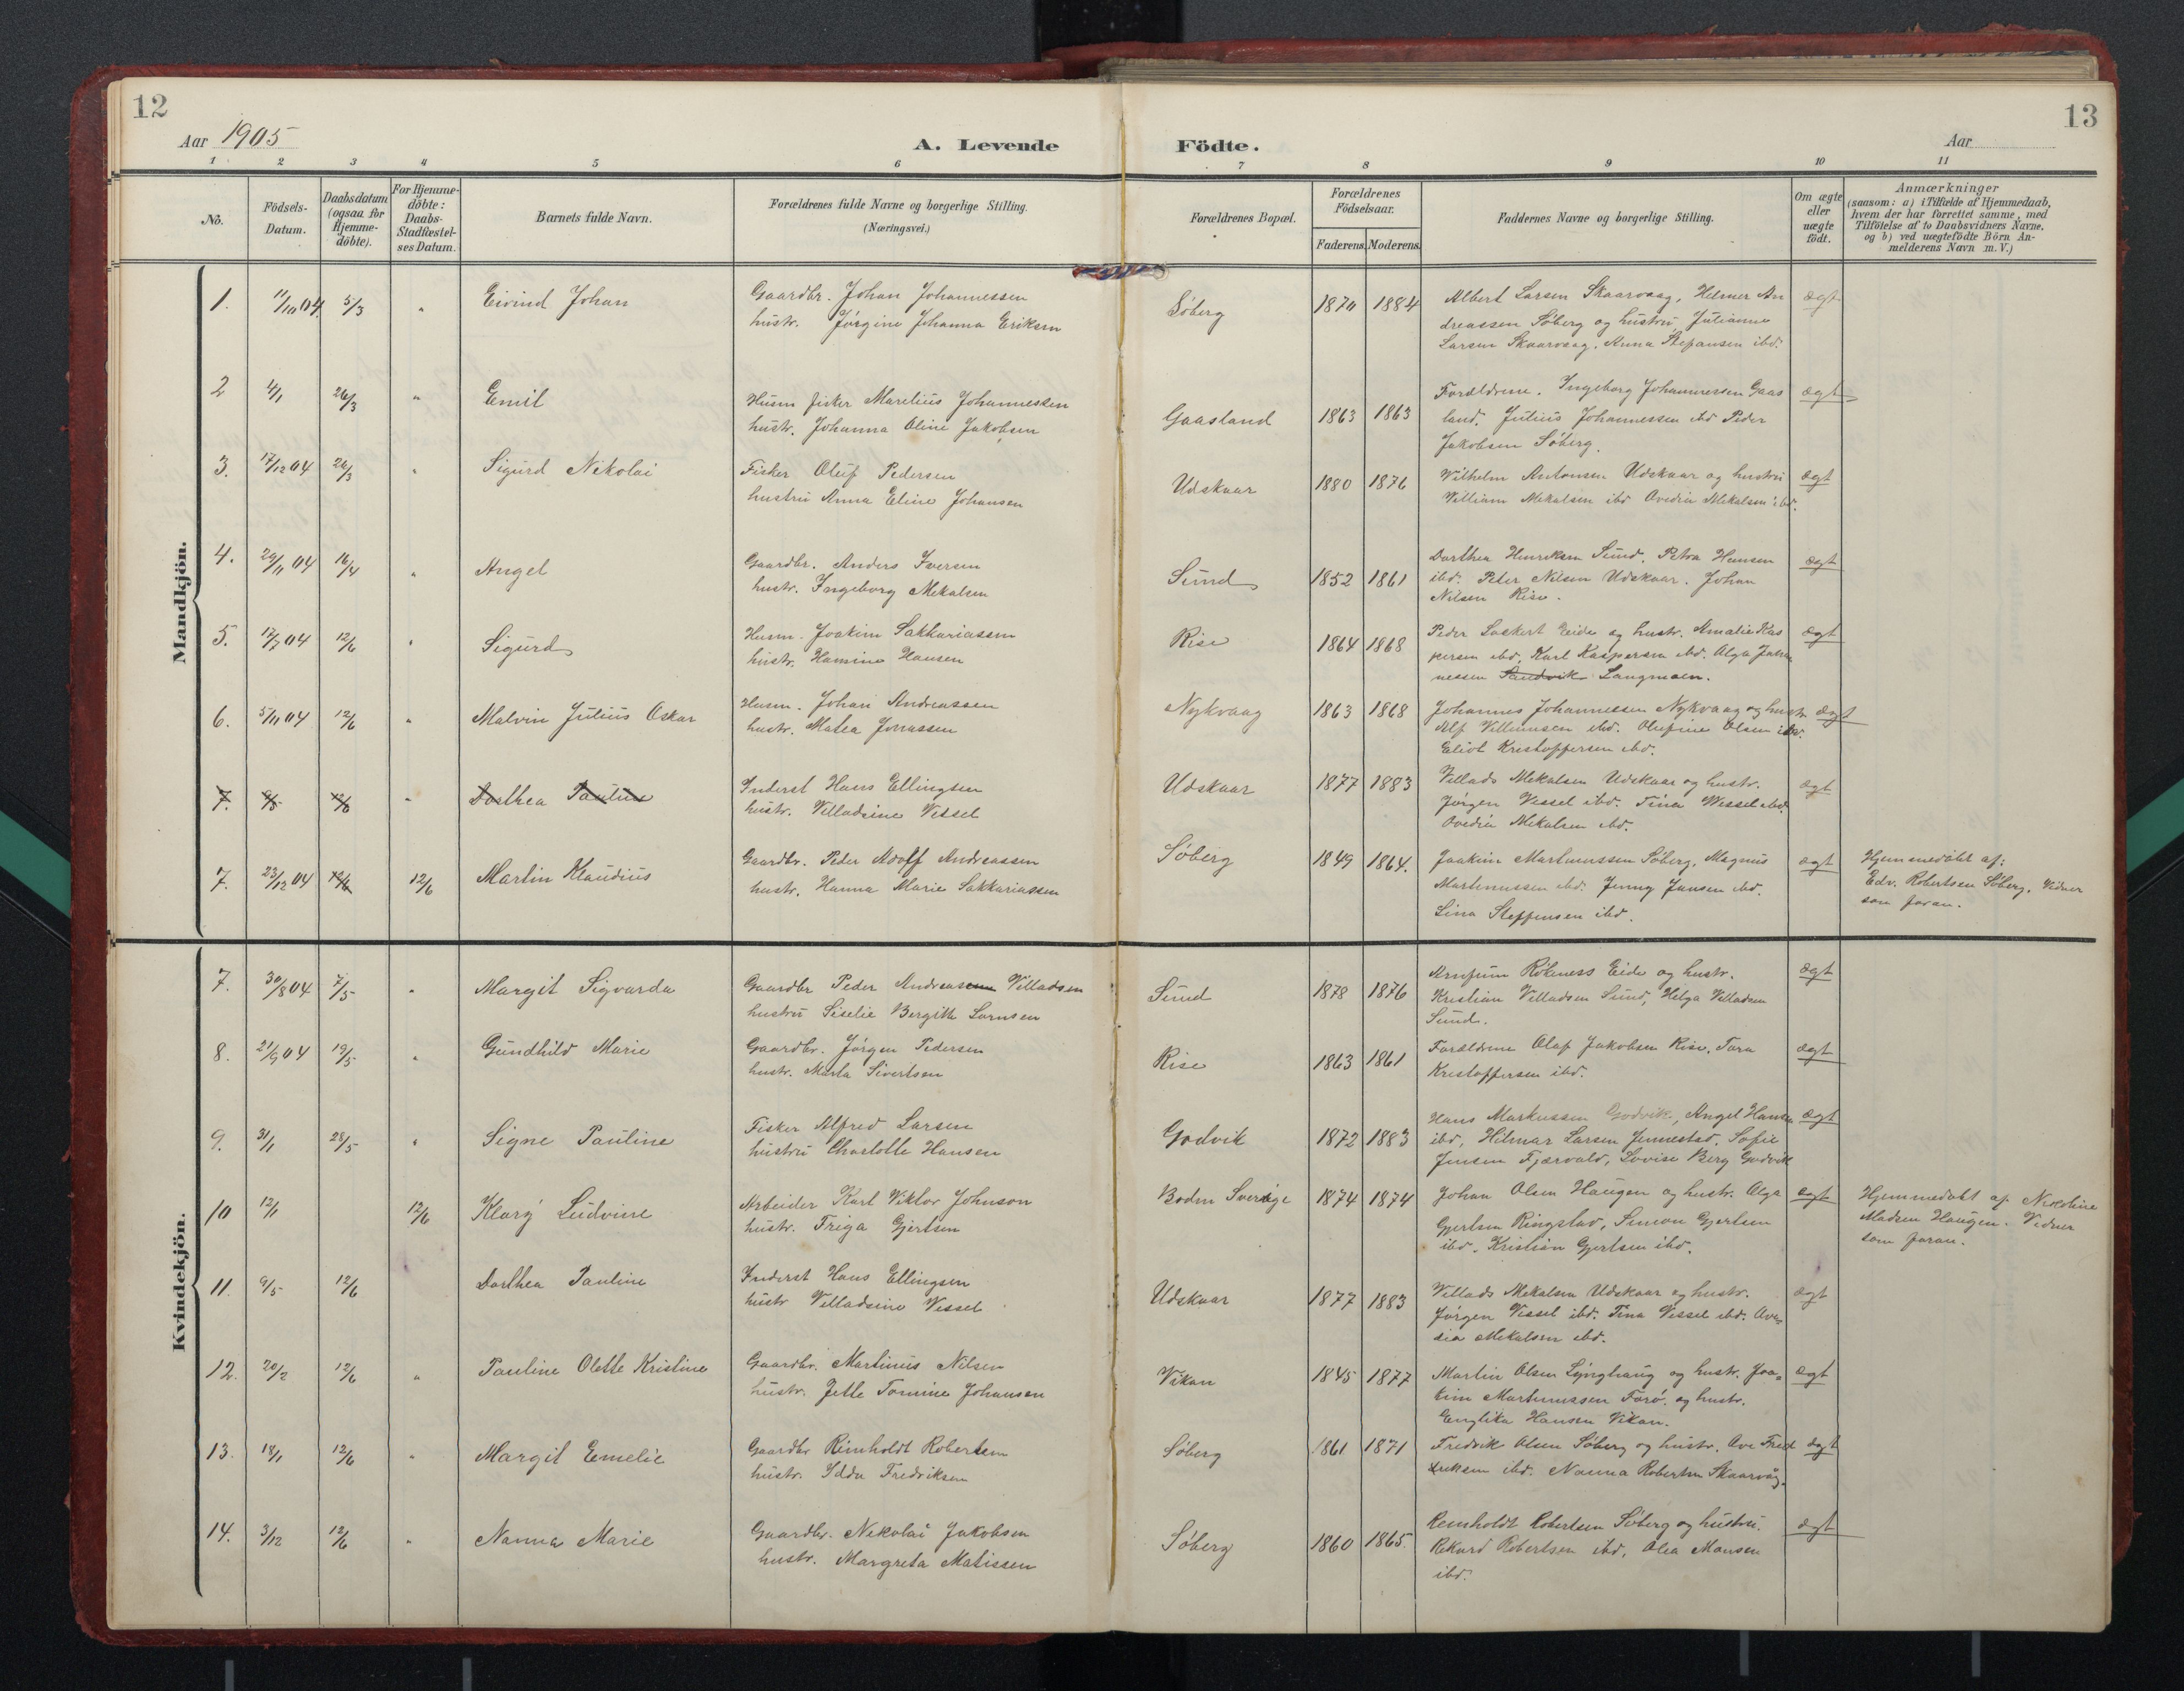 12
13
Aar 1905
A. Levende Födte.
Aar
1 2 3 4 5 6 7 8 9 10 11
No.
Födsels-
Datum.
Daabsdatum
(ogsaa for
Hjemme-
döbte).
For Hjemme-
döbte:
Daabs-
Stadfæstel-
ses Datum.
Barnets fulde Navn.
Forældrenes fulde Navne og borgerlige Stilling.
(Næringsvei.)
Forældrenes Bopæl.
Forældrenes
Födselsaar.
Faderens. Moderens.
Faddernes Navne og borgerlige Stilling.
Om ægte
eller
uægte
födt.
Anmærkninger
(saasom: a) i Tilfælde af Hjemmedaab,
hvem der har forrettet samme, med
Tilföielse af to Daabsvidners Navne,
og b) ved uægtefödte Börn An-
melderens Navn m. V.)
Mandkjön.
1. 11/10 04 5/3 " Eivind Johan
Gaardbr. Johan Johannessen
hustr. Jørgine Johanna Eriksen
Søberg 1870 1884
Albert Larsen Skaarvaag, Helmer An
dreassen Søberg og hustru, Julianne
Larsen Skaarvaag. Anna Stefansen ibd.
ægt
2 4/1 26/3 " Emil
Husm fisker Marelius Johannessen
hustr. Johanna Oline Jakobsen
Gaasland 1863 1863
Forældrene. Ingeborg Johannessen Gaas
land. Julius Johannessen ibd Peder
Jakobsen Søberg.
ægt
3. 17/12 04 26/3 " Sigurd Nikolai
Fisker Oluf Pedersen
hustru Anna Eline Johansen
Udskaar 1880 1876
Wilhelm Antonsen Udskaar og hustru
William Mekalsen ibd Ovedia Mekalsen ibd.
ægt
4. 29/11 04 16/4 " Angel
Gaardbr. Anders Iversen
hustr. Ingeborg Mekalsen
Sund 1852 1861
Dorthea Henriksen Sund, Petra Hansen
ibd. Peter Nilsen Udskaar. Johan
Nilsen Rise.
ægt
5. 17/7 04 12/6 " Sigurd
Husm. Joakim Sakkariassen
hustr. Hamine Hansen
Rise 1864 1868
Peder Lockert Eide og hustr. Amalie Kas
persen ibd, Karl Kaspersen ibd. Alga Johan
nessen Sandvik Langmoen.
ægt
6. 5/11 04 12/6 " Malvin Julius Oskar
Husm. Johan Andreassen
hustr. Matea Jonassen
Nykvaag 1863 1868
Johannes Johannessen Nykvaag og hustr.
Alf Villumsen ibd. Olufine Olsen ibd.
Eliot Kristoffersen ibd.
ægt
7. 9/5 12/6 " Dorthea Pauline
Inderst Hans Ellingsen
hustr. Villadsine Vessel
Udskaar 1877 1883
Villads Mekalsen Udskaar og hustr.
Jørgen Vessel ibd. Tina Wessel ibd.
Ovedia Mekalsen ibd.
ægt
7. 23/12 04 12/6 12/6 Martin Klaudius
Gaardbr. Peder Adolf Andreassen
hustr. Hanna Marie Sakkariassen
Søberg 1849 1864.
Joakim Martinussen Søberg, Magnus
Martinussen ibd. Jenny Jansen ibd.
Lina Steffensen ibd.
ægt
Hjemmedøbt af:
Edv. Robertsen Søberg. Vidner
som foran.
Kvindekjön.
7. 30/8 04 7/5 " Margit Sigvarda
Gaardbr Peder Andreasenn Villadsen
hustru Siselie Bergitte Larnsen
Sund 1878 1876
Arnfinn Røkeness Eide og hustr.
Kristian Villadsen Sund, Helga Villadsen
Sund.
ægt
8. 21/9 04 19/5 " Gundhild Marie
Gaardbr. Jørgen Pedersen
hustr. Marta Sivertsen
Rise 1863 1861
Forældrene Olaf Jakobsen Rise, Tora
Kristoffersen ibd.
ægt
9. 31/1 28/5 " Signe Pauline
Fisker Alfred Larsen
hustru Charlotte Hansen
Godvik 1872 1883
Hans Markussen Godvik, Angel Hansen
ibd, Hilmar Larsen Jennestad. Sofie
Jensen Fjærvold, Lovise Berg Godvik
ægt
10 12/1 12/6 Klary Ludvine
Arbeider Karl Viktor Johnson
hustr. Friga Gjertsen
Boden Sverige 1874 1874
Johan Olsen Haugen og hustr. Olga
Gjertsen Ringstad, Simon Gjertsen
ibd. Kristian Gjertsen ibd.
ægt
Hjemmedøbt af Nicoline
Madsen Haugen. Vidner
som foran.
11. 9/5 12/6 Dorthea Pauline
Inderst Hans Ellingsen
hustr Villadsine Vessel
Udskaar 1877 1883
Villads Mekalsen Udskaar og hustr.
Jørgen Vessel ibd. Tina Vessel ibd. Ove-
dia Mekalsen ibd.
ægt
12. 20/2 12/6 " Pauline Olette Kristine
Gaardbr. Martinus Nilsen
hustr. Jette Tomine Johansen
Vikan 1845 1877
Martin Olsen Lynghaug og hustr. Joa-
kim Martinussen Forø. og hustr.
Englika Hansen Vikan.
ægt
13. 18/1 12/6 " Margit Emelie
Gaardbr Rimholdt Robertsen
hustr. Idda Fredriksen
Søberg 1861 1871
Fredrik Olsen Søberg og hustr. Ove Fred
reksen ibd. Nanna Robertsen Skaarvåg.
ægt
14. 3/12 12/6 " Nanna Marie
Gaardbr. Nekolai Jakobsen
hustr. Margreta Matissen
Søberg 1860 1865
Remholdt Robertsen Søberg og hustru.
Rekard Robertsen ibd, Olea Monsen
ibd.
ægt